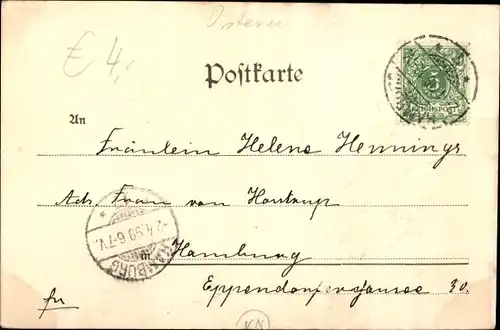 Ostern
€ 4,-
Postkarte
5
REICHSPOST
An
Fräulein Helene Hennings
Adr. Frau von Horstrup
HAMBURG
2.4.99.6-7V.
in Hamburg
Eppendorferchaussee 30.
KN